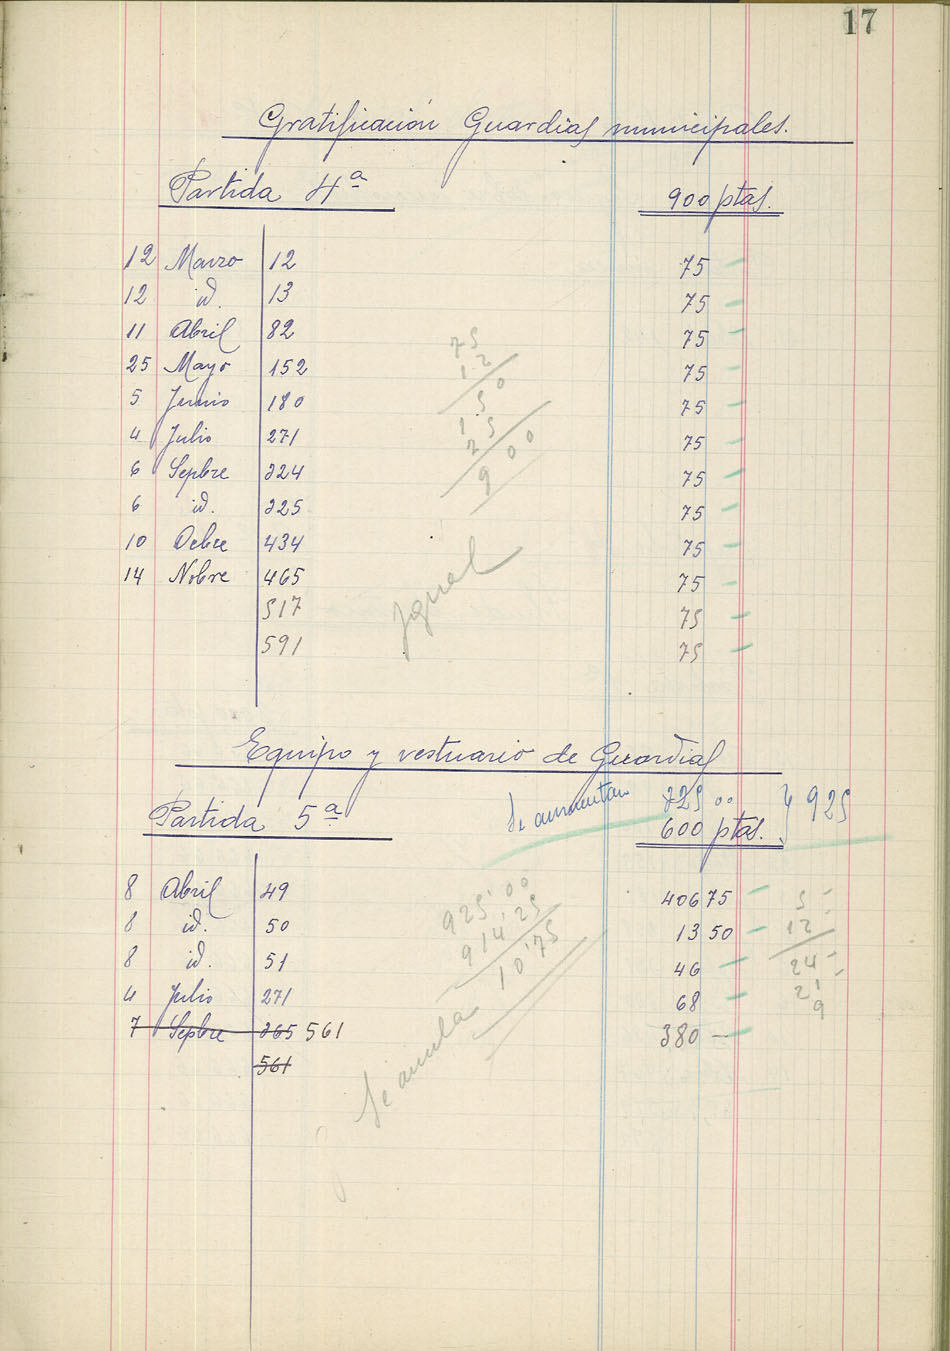 17
Gratificación Guardias municipales.
Partida 4ª 900 ptas.
12 Marzo 12 75
12 id. 13 75
11 Abril 82 75
25 Mayo 152 75
5 Junio 180 75
4 Julio 271 75
6 Sepbre 324 75
6 id. 325 75
10 Ocbre 434 75
14 Nobre 465 75
517 75
591 75
75
12
150
25
900
Igual
Equipo y vestuario de Guardias
Se aumentan 325 00 } 925
Partida 5ª 600 ptas.
8 Abril 49 406 75
8 id. 50 13 50
8 id. 51 46
4 Julio 271 68
7 Sepbre 365 561 380 —
561
925'00
914'25
10'75
Se anula
5
12
24